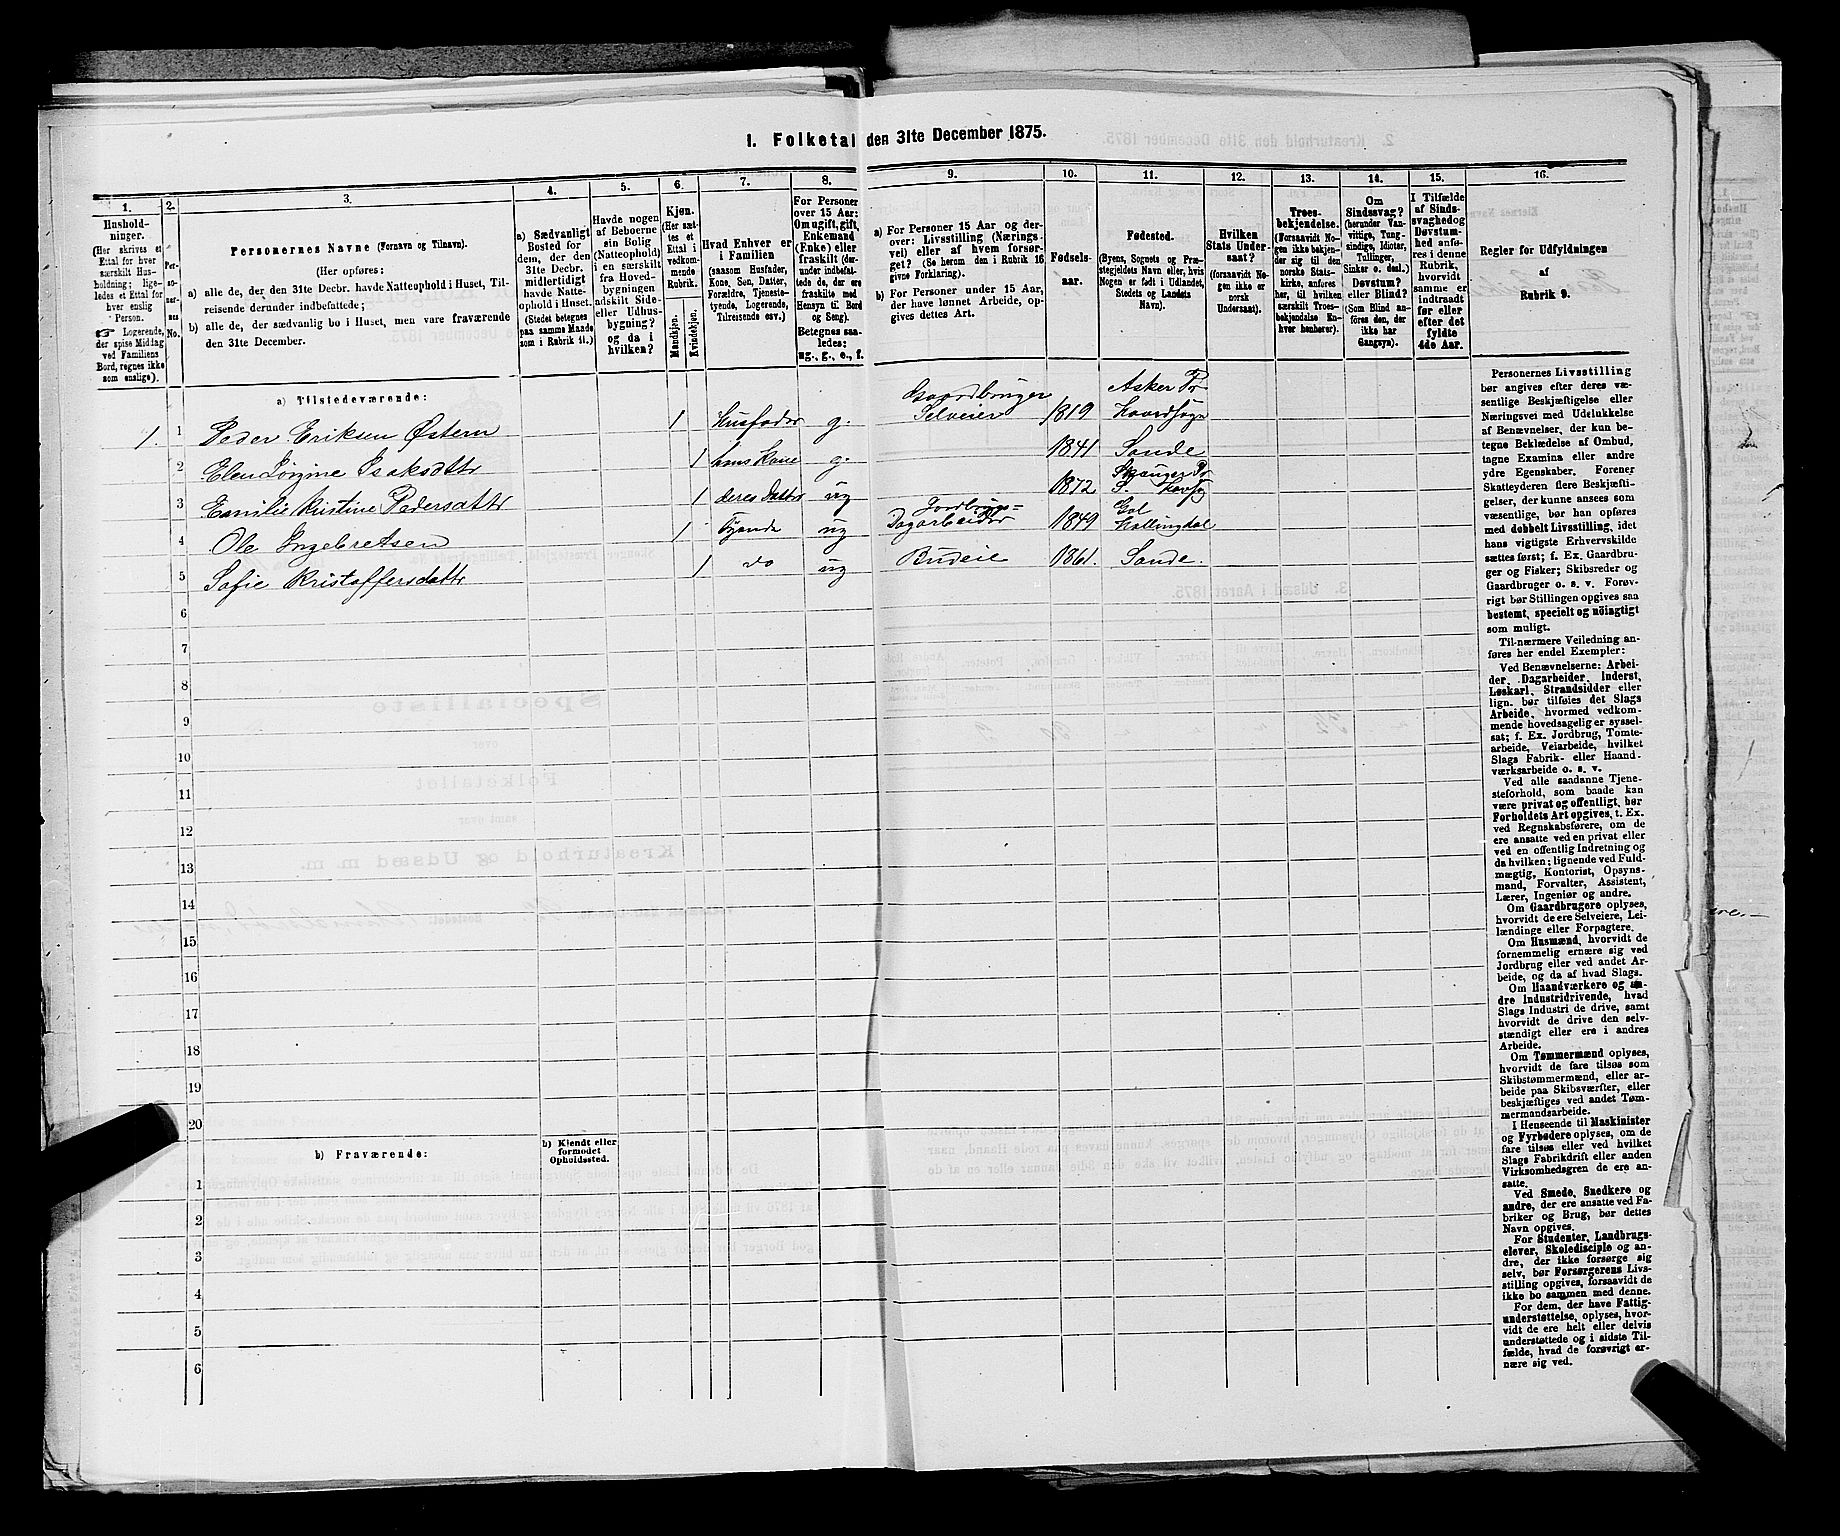 I. Folketal den 31te December 1875.
1.
2.
3.
4.
5.
6.
7.
8.
9.
10.
11.
12.
13.
14.
15.
16.
Hushold-
ninger.
(Her skrives et
Ettal for hver
særskilt Hus-
holdning; lige-
ledes et Ettal for
hver enslig
Person.
☞ Logerende,
der spise Middag
ved Familiens
Bord, regnes ikke
som enslige).
Per-
soner-
nes
No.
Personernes Navne (Fornavn og Tilnavn).
(Her opføres:
a) alle de, der den 31te Decbr. havde Natteophold i Huset, Til-
reisende derunder indbefattede;
b) alle de, der sædvanlig bo i Huset, men vare fraværende
den 31te December.
a) Sædvanligt
Bosted for
dem, der den
31te Decbr.
midlertidigt
havde Natte-
ophold i Huset.
(Stedet betegnes
paa samme Maade
som i Rubrik 11.)
Havde nogen
af Beboerne
sin Bolig
(Natteophold)
i en særskilt
fra Hoved-
bygningen
adskilt Side-
eller Udhus-
bygning?
og da i
hvilken?
Kjøn.
(Her sæt-
tes et
Ettal i
vedkom-
mende
Rubrik.
Mandkjøn.
Kvindekjøn.
Hvad Enhver er
i Familien
(saasom Husfader,
Kone, Søn, Datter,
Forældre, Tjeneste-
tyende, Logerende,
Tilreisende osv.)
For Personer
over 15 Aar:
Om ugift, gift,
Enkemand
(Enke) eller
fraskilt (der-
under indbefat-
tede de, der ere
fraskilte med
Hensyn til Bord
og Seng).
Betegnes saa-
ledes:
ug., g., e., f.
a) For Personer 15 Aar og der-
over: Livsstilling (Nærings-
vei) eller af hvem forsør-
get? (Se herom den i Rubrik 16
givne Forklaring).
b) For Personer under 15 Aar,
der have lønnet Arbeide, op-
gives dettes Art.
Fødsels-
aar.
Fødested.
(Byens, Sognets og Præ-
stegjeldets Navn eller, hvis
Nogen er født i Udlandet,
Stedets og Landets
Navn).
Hvilken
Stats Under-
saat?
(forsaavidt No-
gen ikke er
norsk
Undersaat).
Troes-
bekjendelse.
(Forsaavidt No-
gen ikke bekjen-
der sig til den
norske Stats-
kirke, anføres
her, til hvilken
særskilt Troes-
bekjendelse En-
hver henhører).
Om
Sindssvag?
(herunder Van-
vittige, Tung-
sindige, Idioter,
Tullinger,
Sinker o. desl.)
Døvstum?
eller Blind?
(Som Blind an-
føres den, der
ikke har
Gangsyn).
I Tilfælde
af Sinds-
svaghed og
Døvstum-
hed anfø-
res i denne
Rubrik,
hvorvidt
samme er
indtraadt
før eller
efter det
fyldte
4de Aar.
Regler for Udfyldningen
af
Rubrik 9.
a) Tilstedeværende:
1. 1 Peder Eriksen Østern 1 Husfader g. Gaardbruger Selveier 1819 Asker Pr Hovedsogn
2 Elen Jørgine Isaksdattr 1 hans Kone g. 1841 Sande
3 Emilie Kristine Pedersdattr 1 deres Dattr ug 1872 Skouger Pr S. Hovsog
4 Ole Ingebretsen 1 Tyende ug Jordbrugs= Dagarbeider 1849 Gol Hallingdal
5 Sofie Kristoffersdattr 1 do ug Budeie 1861. Sande.
6
7
8
9
10
11
12
13
14
15
16
17
18
19
20
b) Fraværende:
b) Kjendt eller
formodet
Opholdssted.
1
2
3
4
5
6
Personernes Livsstilling
bør angives efter deres væ-
sentlige Beskjæftigelse eller
Næringsvei med Udelukkelse
af Benævnelser, der kun be-
tegne Beklædelse af Ombud,
tagne Examina eller andre
ydre Egenskaber. Forener
Skatteyderen flere Beskjæfti-
gelser, der kunne ansees som
væsentlige, bør han opføres
med dobbelt Livsstilling, idet
hans vigtigste Erhvervskilde
sættes først; f. Ex. Gaardbru-
ger og Fisker; Skibsreder og
Gaardbruger o. s. v. Forøv-
rigt bør Stillingen opgives saa
bestemt, specielt og nöiagtigt
som muligt.
Til nærmere Veiledning an-
føres her endel Exempler:
Ved Benævnelserne: Arbei-
der, Dagarbeider, Inderst,
Løskarl, Strandsidder eller
lign. bør tilføies det Slags
Arbeide, hvormed vedkom-
mende hovedsagelig er syssel-
sat; f. Ex. Jordbrug, Tomte-
arbeide, Veiarbeide, hvilket
Slags Fabrik- eller Haand-
værksarbeide o. s. v.
Ved alle saadanne Tjene-
steforhold, som baade kan
være privat og offentligt, bør
Forholdets Art opgives, t. Ex.
ved Regnskabsførere, om de
ere ansatte ved en privat eller
ved en offentlig Indretning og
da hvilken; lignende ved Fuld-
mægtig, Kontorist, Opsyns-
mand, Forvalter, Assistent,
Lærer, Ingeniør og andre.
Om Gaardbrugere oplyses,
hvorvidt de ere Selveiere, Lei-
lændinge eller Forpagtere.
Om Husmænd, hvorvidt de
fornemmelig ernære sig ved
Jordbrug eller ved andet Ar-
beide, og da af hvad Slags.
Om Haandværkere og an-
dre Industridrivende, hvad
Slags Industri de drive, samt
hvorvidt de drive den selv-
stændigt eller ere i andres
Arbeide.
Om Tømmermænd oplyses,
hvorvidt de fare tilsøs som
Skibstømmermænd, eller ar-
beide paa Skibsværfter, eller
beskjæftiges ved andet Tøm-
mermandsarbeide.
I Henseende til Maskinister
og Fyrbødere oplyses, om de
fare tilsøs eller ved hvilket
Slags Fabrikdrift eller anden
Virksomhedsgren de ere an-
satte.
Ved Smede, Snedkere og
andre, der ere ansatte ved Fa-
briker og Brug, bør dettes
Navn opgives.
For Studenter, Landbrugs-
elever, Skoledisciple og an-
dre, der ikke forsørge sig
selv, bør Forsørgerens Livs-
stilling opgives, forsaavidt de
ikke bo sammen med denne.
For dem, der have Fattig-
understøttelse, oplyses, hvor-
vidt de ere helt eller delvis
understøttede og i sidste Til-
fælde, hvad de forøvrigt er-
nære sig ved.